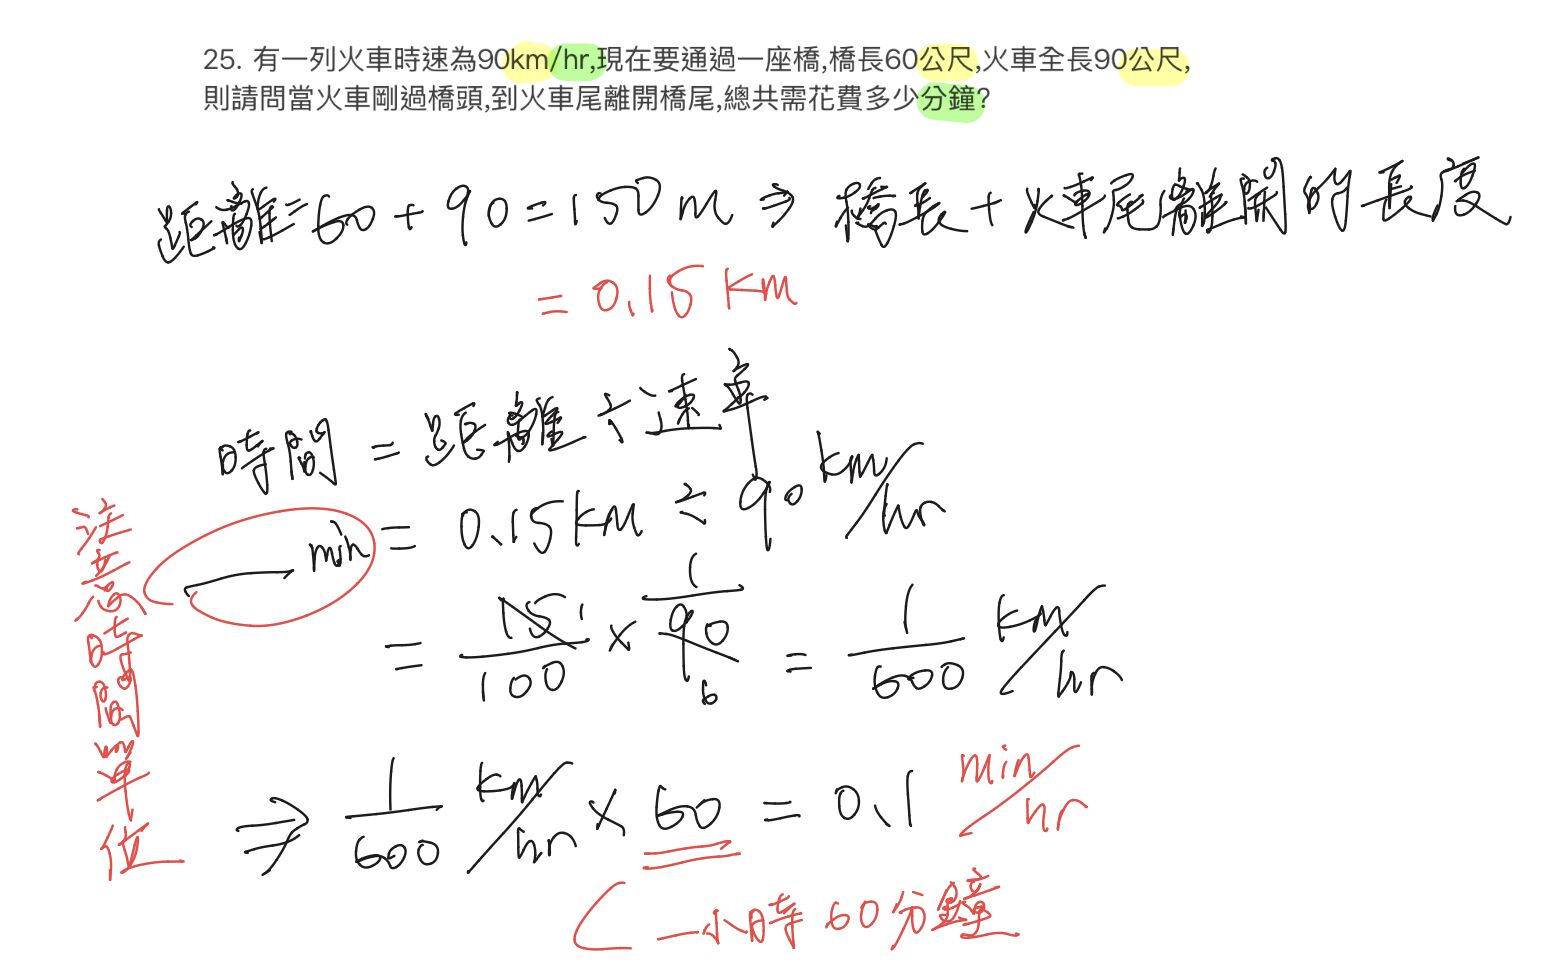 25. 有一列火車時速為90km/hr,現在要通過一座橋,橋長60公尺,火車全長90公尺,
則請問當火車剛過橋頭,到火車尾離開橋尾,總共需花費多少分鐘?
距離=60+90=150m ⇒ 橋長+火車尾離開的長度
=0.15km
時間=距離÷速率
注意時間單位
min = 0.15km ÷ 90 km/hr
= 15/100 × 1/90 = 1/600 km/hr
1 6
⇒ 1/600 km/hr × 60 = 0.1 min/hr
一小時60分鐘